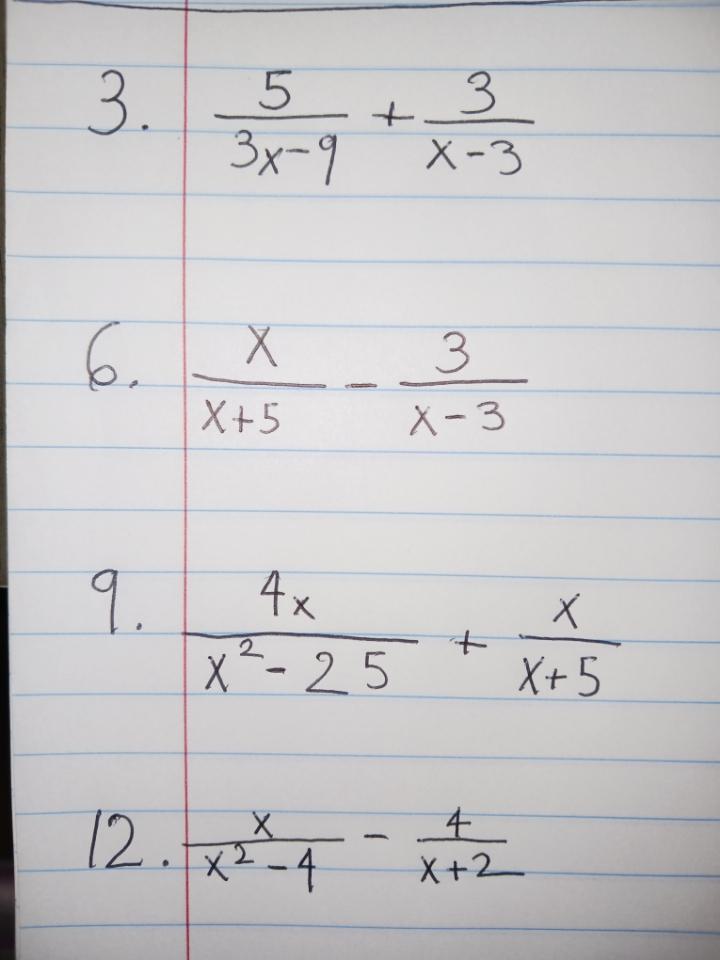 3. 5/(3x-9) + 3/(x-3)
6. x/(x+5) - 3/(x-3)
9. 4x/(x²-25) + x/(x+5)
12. x/(x²-4) - 4/(x+2)